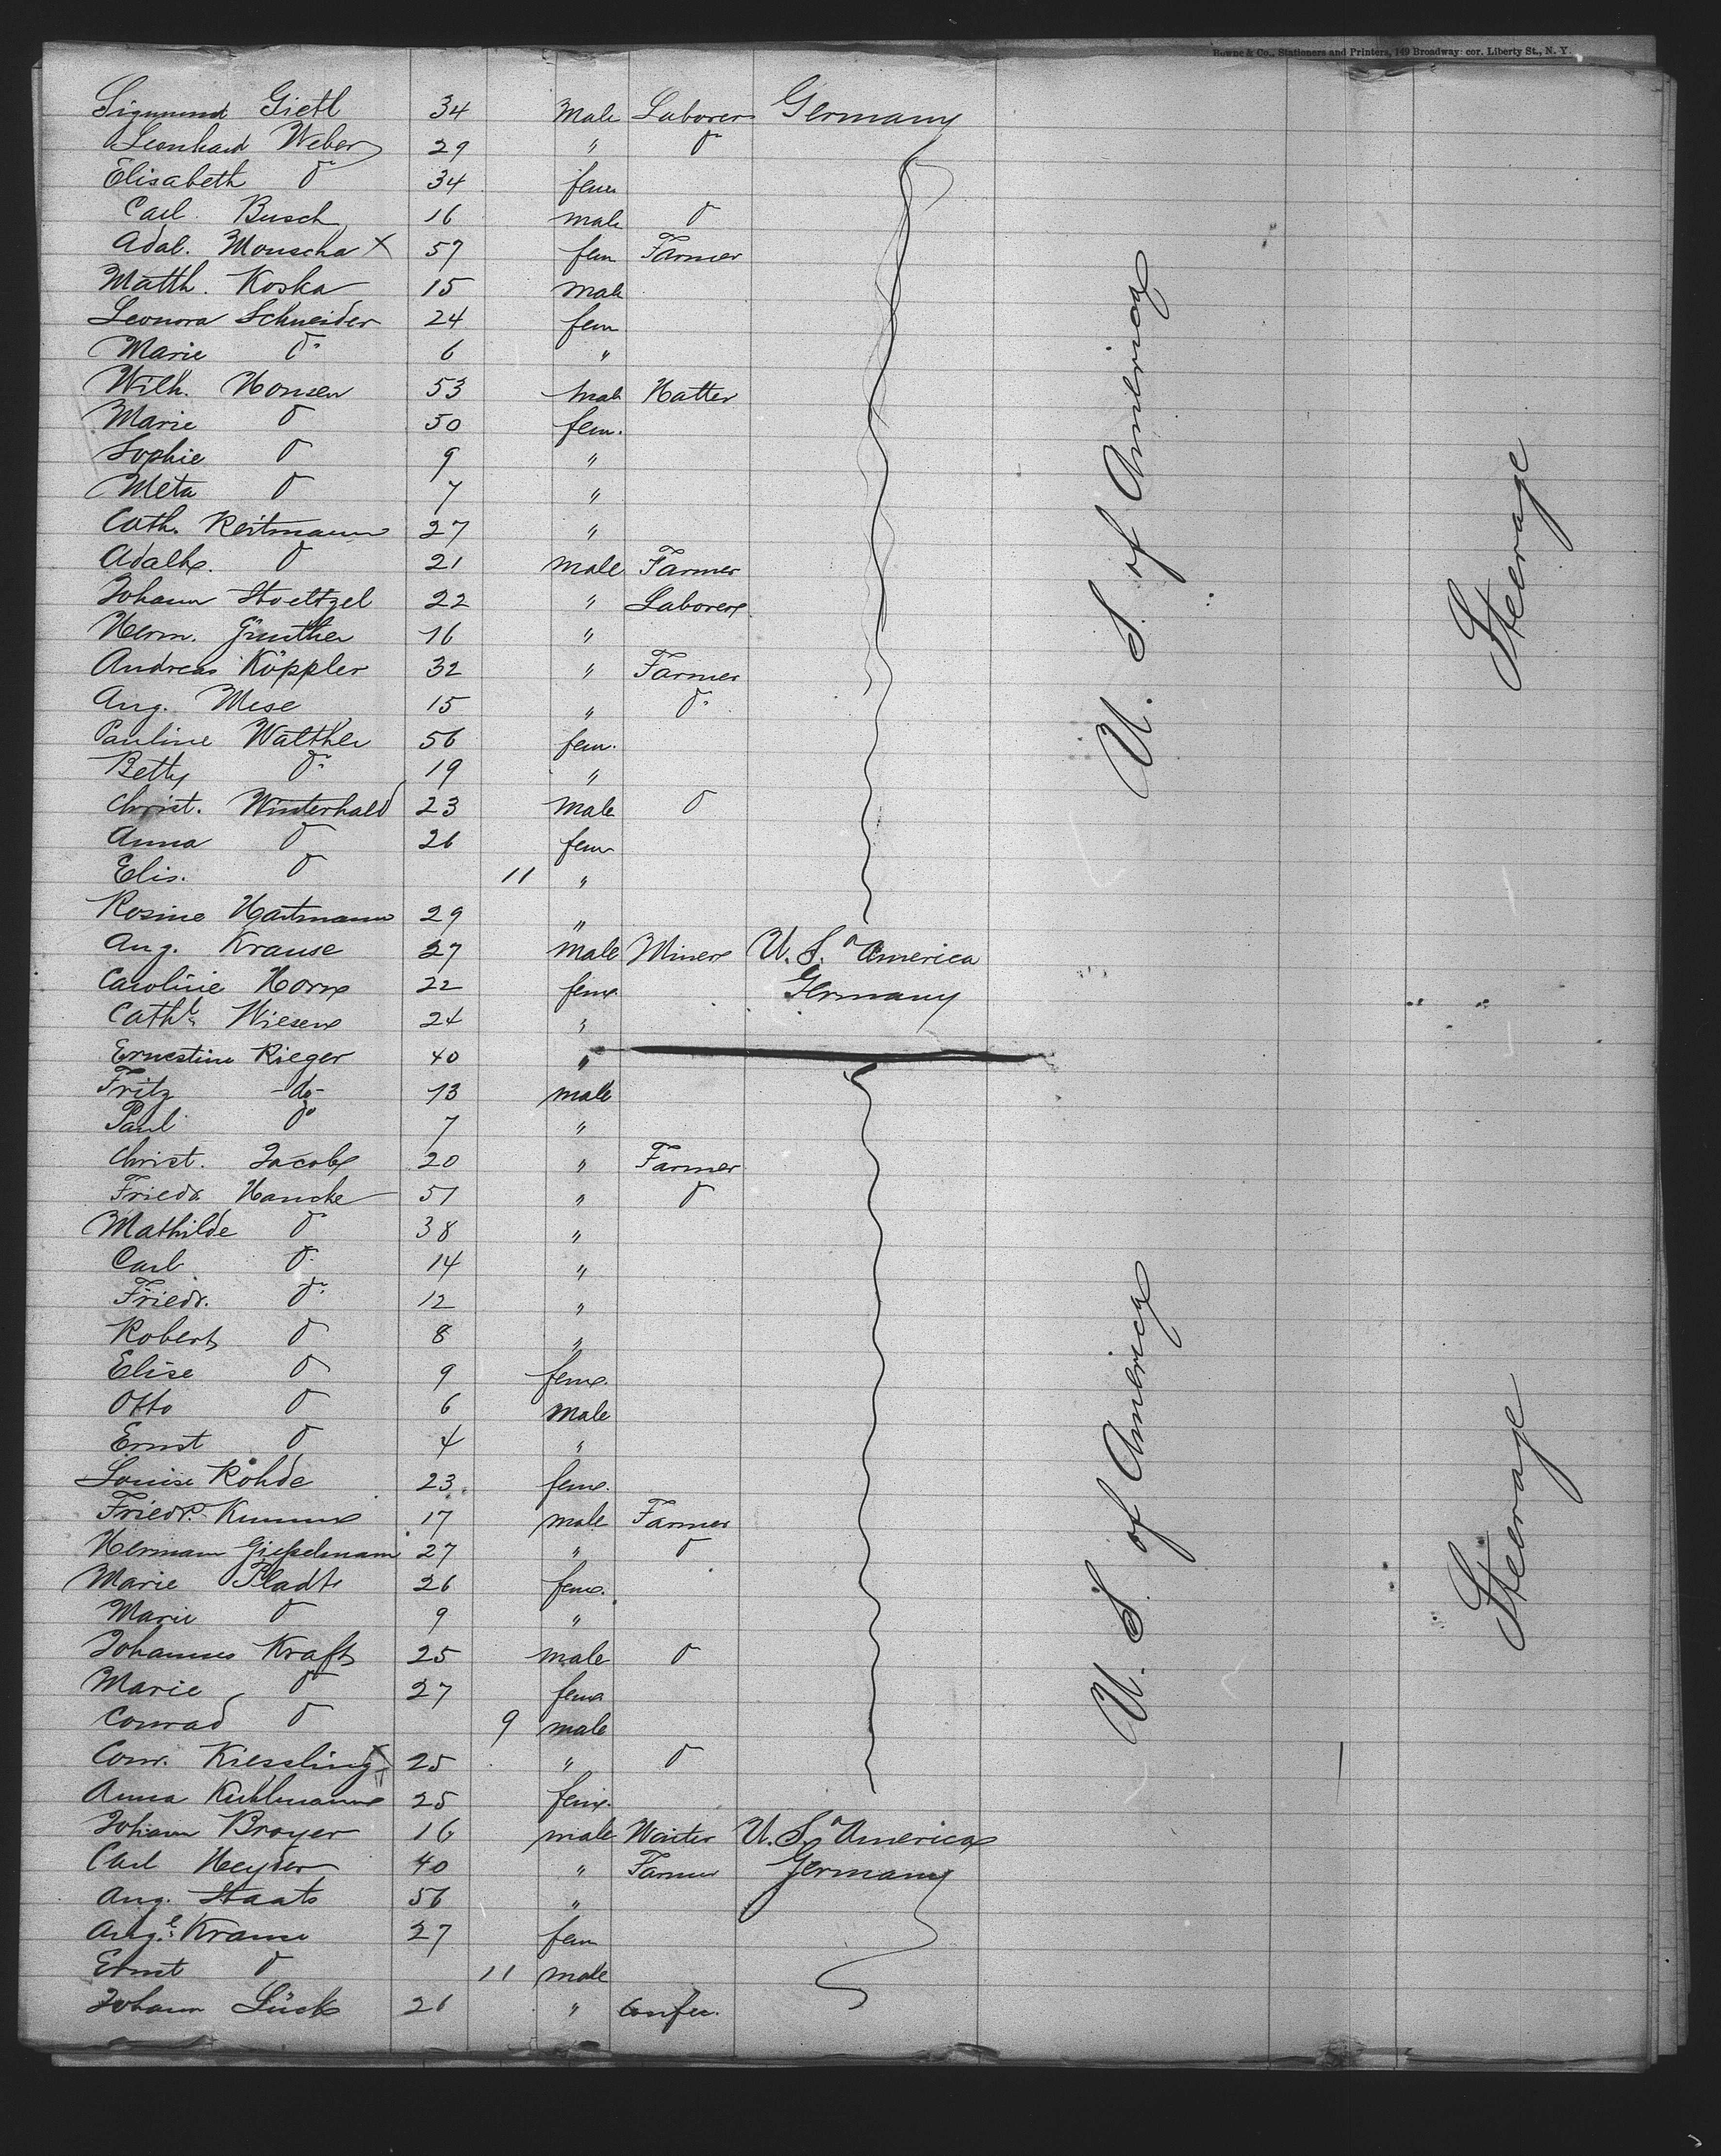 Bowne & Co., Stationers and Printers, 149 Broadway cor. Liberty St., N. Y.
Sigmund Gietl 34 Male Laborer Germany
Leonhard Weber 29 " do
Elisabeth do 34 fem
Carl Busch 16 male do
Adal. Mouscha X 57 fem Farmer
Matth. Koska 15 male
Leonora Schneider 24 fem
Marie do 6 "
Wilh. Honsen 53 male Hatter
Marie do 50 fem.
Sophie do 9 "
Meta do 7 "
Cath. Reitmann 27 "
Adalb. do 21 male Farmer
Johann Stoeltzel 22 " Laborer
Herm. Günther 16 "
Andreas Köppler 32 " Farmer
Aug. Mise 15 " do
Pauline Walther 56 fem.
Betty do 19 "
Christ. Winterhald 23 male do
Anna do 26 fem
Elis. do 11 "
Rosine Hartmann 29 "
Aug. Krause 27 male Miner U. S. o America
Caroline Horn 22 fem Germany
Cath. Wiesen 24 "
Ernestine Rieger 40 "
Fritz -do- 13 male
Paul do 7 "
Christ. Jacob 20 " Farmer
Friedr. Hancke 51 " do
Mathilde do 38 "
Carl do 14 "
Friedr. do 12 "
Robert do 8 "
Elise do 9 fem.
Otto do 6 male
Ernst do 4 "
Louise Rohde 23 fem.
Friedr. Kumm 17 male Farmer
Hermann Gießelmann 27 " do
Marie Pladt 26 fem.
Marie do 9 "
Johannes Kraft 25 male do
Marie do 27 fem
Conrad do 9 male
Conr. Kiessling X 25 " do
Anna Kuhlmann 25 fem.
Johann Brayer 16 male Waiter U. S. o America
Carl Heyder 40 " Farmer Germany
Aug. Staats 56 "
Aug.e Krause 27 fem
Ernst do 11 male
Johann Lück 26 " Confec.
U. S. of America
Steerage
U. S. of America
Steerage